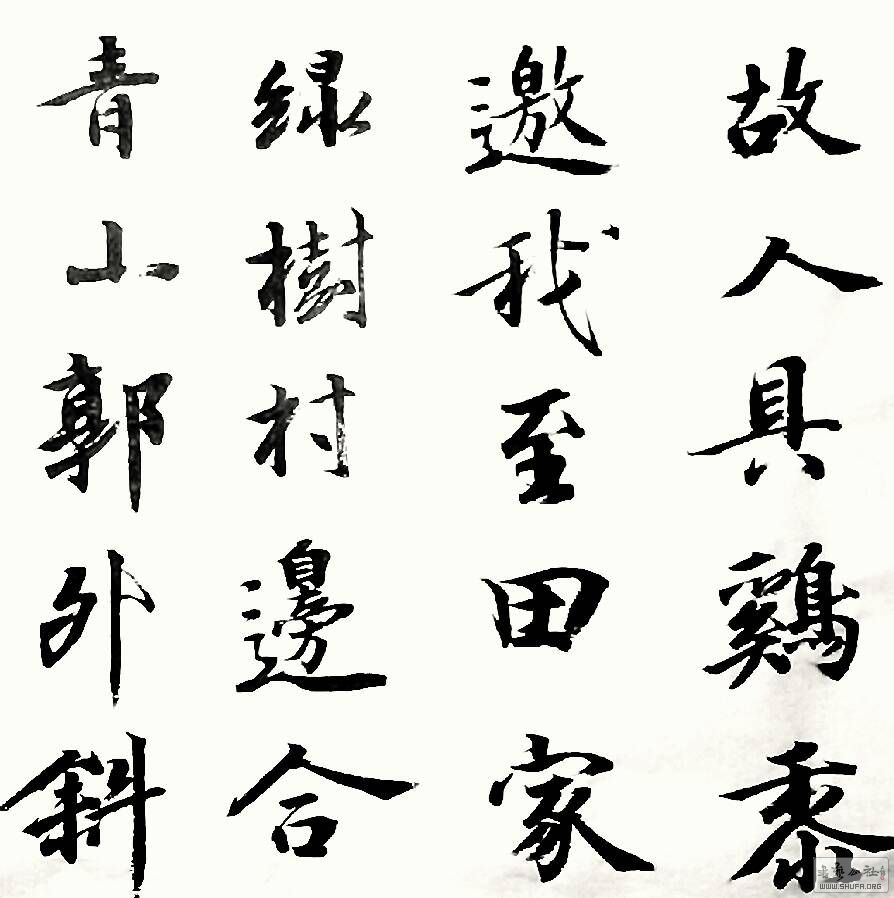 故人具鷄黍
邀我至田家
緑樹村邊合
青山郭外斜
WWW.SHUFA.ORG